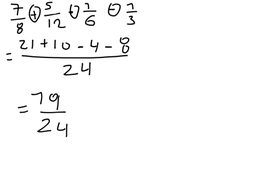 7/8 ⊕ 5/12 ⊖ 1/6 ⊖ 1/3
= (21 + 10 - 4 - 8)/24
= 19/24